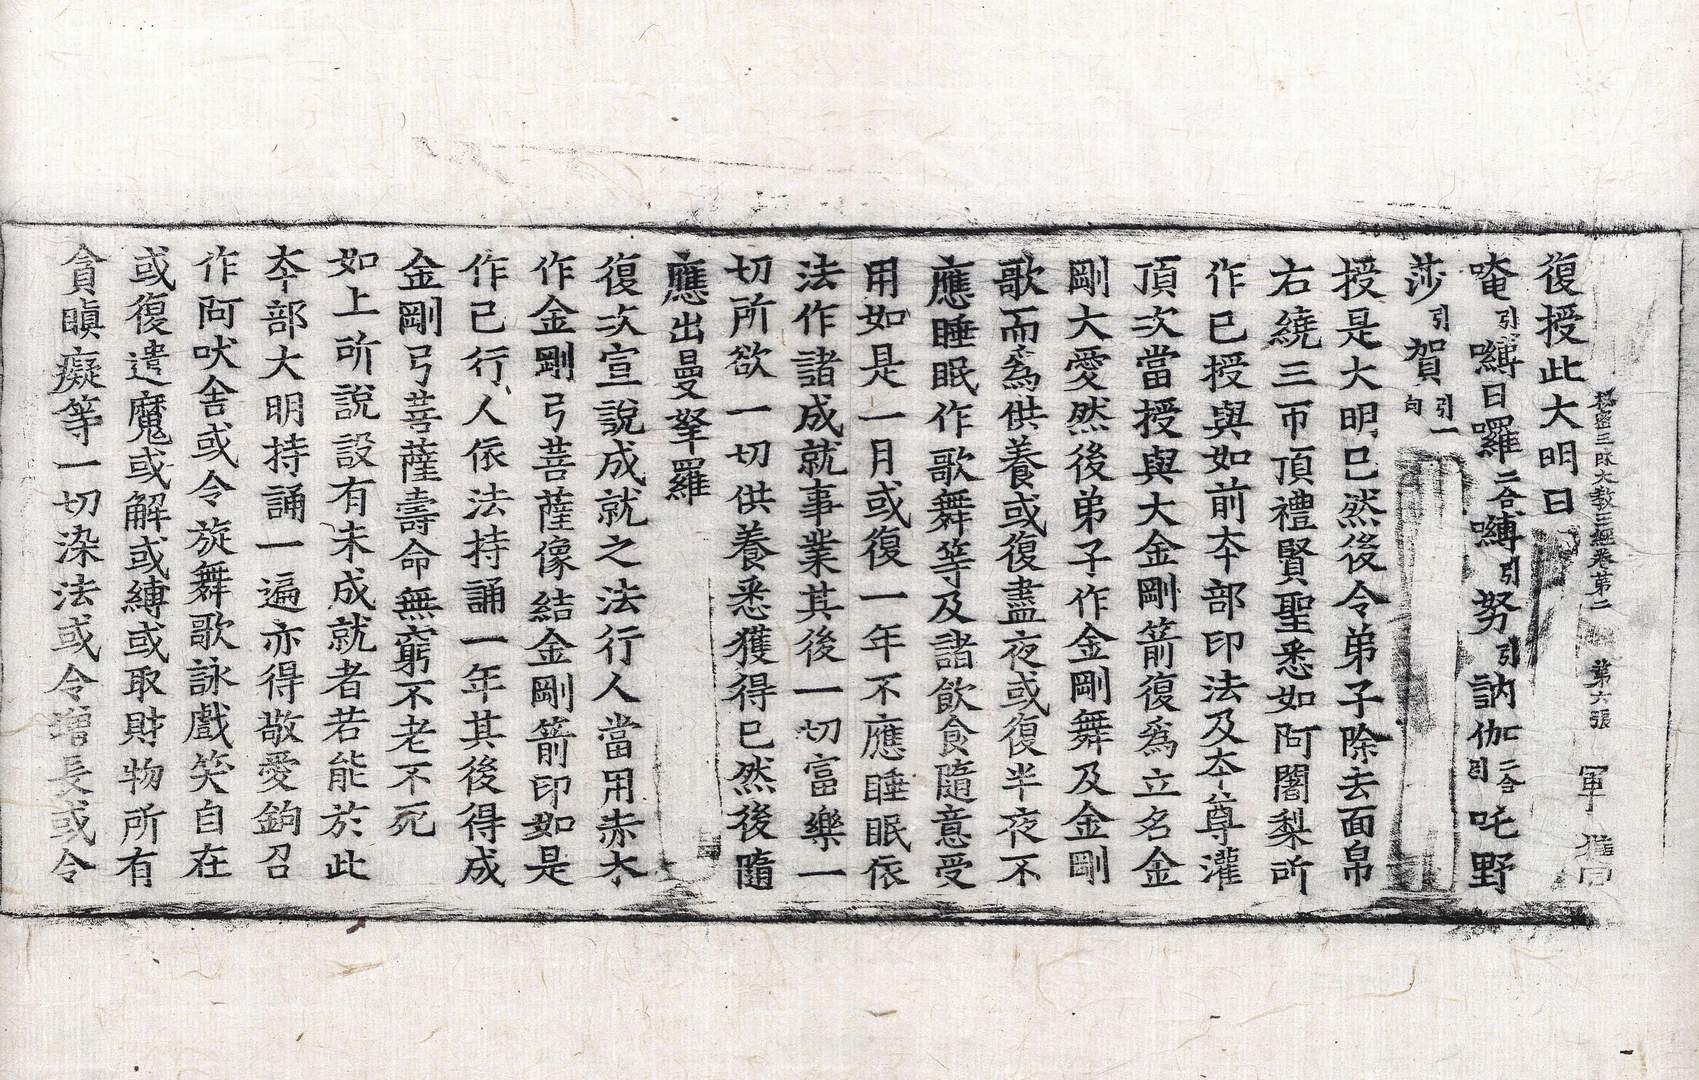 復授此大明曰
唵引嚩日囉二合嚩引努引訥伽二合引吒野
莎引賀引一句
授是大明已然後令弟子除去面帛
右繞三帀頂禮賢聖悉如阿闍梨所
作已授與如前夲部印法及夲尊灌
頂次當授與大金剛箭復爲立名金
剛大愛然後弟子作金剛舞及金剛
歌而爲供養或復盡夜或復半夜不
應睡眠作歌舞等及諸飲食隨意受
用如是一月或復一年不應睡眠依
法作諸成就事業其後一切富樂一
切所欲一切供養悉獲得已然後隨
應出曼拏羅
復次宣說成就之法行人當用赤木
作金剛弓菩薩像結金剛箭印如是
作已行人依法持誦一年其後得成
金剛弓菩薩壽命無窮不老不死
如上所說設有未成就者若能於此
夲部大明持誦一遍亦得敬愛鉤召
作阿吠舍或令旋舞歌詠戲笑自在
或復遣魔或解或縛或取財物所有
貪瞋癡等一切染法或令增長或令
秘密三昧大教王經卷第二 第六張 軍